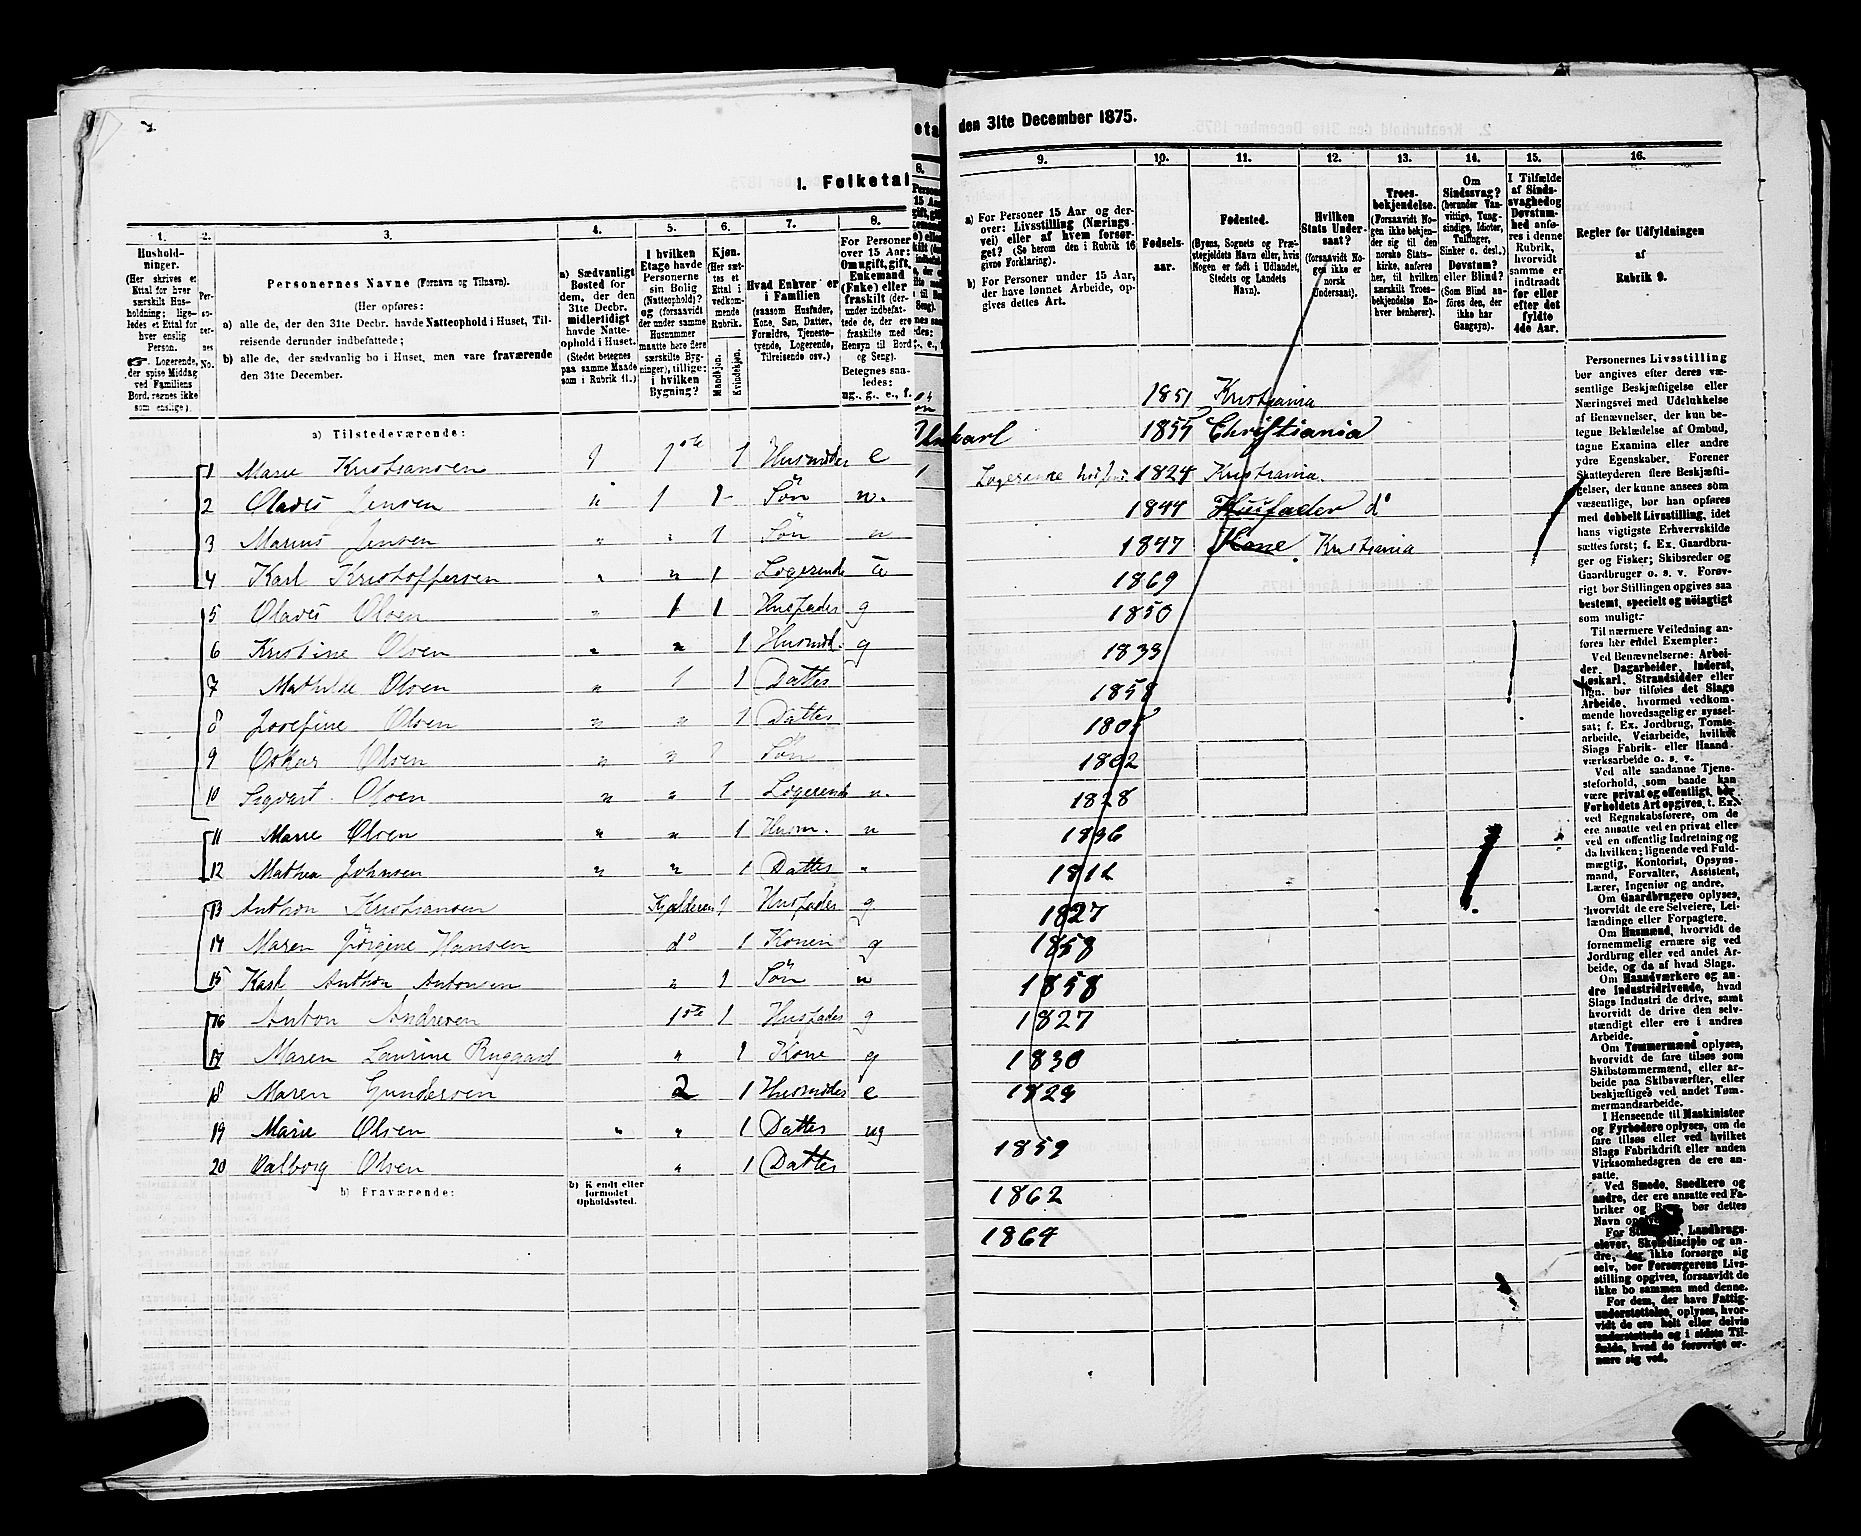 1. Folketal
den 31te December 1875.
1. 2. 3. 4. 5. 6. 7. 8.
Hushold-
ninger.
(Her skrives et
Ettal for hver
særskilt Hus-
holdning; lige-
ledes et Ettal for
hver enslig
Person.
☞ Logerende,
der spise Middag
ved Familiens
Bord, regnes ikke
som enslige).
Per-
so-
ner-
nes
No.
Personernes Navne (Fornavn og Tilnavn).
(Her opføres:
a) alle de, der den 31te Decbr. havde Natteophold i Huset, Til-
reisende derunder indbefattede;
b) alle de, der sædvanlig bo i Huset, men vare fraværende
den 31te December.
a) Sædvanligt
Bosted for
dem, der den
31te Decbr.
midlertidigt
havde Natte-
ophold i Huset.
(Stedet betegnes
paa samme Maade
som i Rubrik 11.)
I hvilken
Etage havde
Personerne
sin Bolig
(Natteophold)?
og (forsaavidt
der under samme
Husnummer
maatte høre flere
særskilte Byg-
ninger), tillige:
i hvilken
Bygning?
Kjøn.
(Her sæt-
tes et
Ettal i
vedkom-
mende
Rubrik.
Mandkjøn.
Kvindekjøn.
Hvad Enhver er
i Familien
(saasom Husfader,
Kone, Søn, Datter,
Forældre, Tjeneste-
tyende, Logerende,
Tilreisende osv.)
For Personer
over 15 Aar:
Om ugift, gift,
Enkemand
(Enke) eller
fraskilt (der-
under indbefat-
tede, de, der ere
fraskilte med
Hensyn til Bord
og Seng).
Betegnes saa-
ledes:
ug., g., e., f.
a) Tilstedeværende:
1 Marie Kristiansen 1 1ste 1 Husmoder e
2 Olaves Jensen " 1 1 Søn u.
3 Marius Jensen " " 1 Søn u
4 Karl Kristoffersen " " 1 Logerende
5 Olaves Olsen " 1 1 Husfader g
6 Kristine Olsen " " 1 Husmod. g
7 Mathilde Olsen " 1 1 Datter
8 Josefine Olsen " " 1 Datter
9 Oskar Olsen " " 1 Søn
10 Sigvart Olsen " " 1 Logerende u.
11 Marie Olsen " " 1 Husm. u
12 Mathea Johnsen " " 1 Datter "
13 Anthon Kristiansen Kjelderen 1 Husfader g
14 Maren Jörgine Hansen do 1 Konen g
15 Karl Anthon Antonsen " 1 Søn u
16 Anton Andresen 1ste 1 Husfader g
17 Maren Laurine Ruggaad " 1 Kone g
18 Maren Gundersen 2 1 Husmoder e
19 Marie Olsen " " 1 Datter ug
20 Valborg Olsen " 1 Datter
b) Fraværende:
b) Kjendt eller
formodet
Opholdssted.
9. 10. 11. 12. 13. 14. 15. 16.
a) For Personer 15 Aar og der-
over: Livsstilling (Nærings-
vei) eller af hvem forsør-
get? (Se herom den i Rubrik 16
givne Forklaring).
b) For Personer under 15 Aar,
der have lønnet Arbeide, op-
gives dettes Art.
Fødsels-
aar.
Fødested.
(Byens, Sognets og Præ-
stegjeldets Navn eller, hvis
Nogen er født i Udlandet,
Stedets og Landets
Navn).
Hvilken
Stats Under-
saat?
(forsaavidt No-
gen ikke er
norsk
Undersaat).
Troes-
bekjendelse.
(Forsaavidt No-
gen ikke bekjen-
der sig til den
norske Stats-
kirke, anføres
her, til hvilken
særskilt Troes-
bekjendelse En-
hver benhører).
Om
Sindssvag?
(herunder Van-
vittige, Tung-
sindige, Idioter,
Tullinger,
Sinker o. desl.)
Døvstum?
eller Blind?
(Som Blind an-
føres den, der
ikke har
Gangsyn).
I Tilfælde
af Sinds-
svaghed og
Døvstum-
hed anfø-
res i denne
Rubrik,
hvorvidt
samme er
indtraadt
før eller
efter det
fyldte
4de Aar.
Regler for Udfyldningen
af
Rubrik 9.
1851 Kristiania
1855 Christiania
Logerende 1824 Kristiania.
1844 Husfader do
1847 Kone Kristiania
1869
1850
1833
1858
1802
1828
1827
1858
1858
1827
1830
1829
1859
1862
1864
Personernes Livsstilling
bør angives efter deres væ-
sentlige Beskjæftigelse eller
Næringsvei med Udelukkelse
af Benævnelser, der kun be-
tegne Beklædelse af Ombud,
tagne Examina eller andre
ydre Egenskaber. Forener
Skatteyderen flere Beskjæfti-
gelser, der kunne ansees som
væsentlige, bør han opføres
med dobbelt Livsstilling, idet
hans vigtigste Erhvervskilde
sættes først; f. Ex. Gaardbru-
ger og Fisker; Skibsreder og
Gaardbruger o. s. v. Forøv-
rigt bør Stillingen opgives saa
bestemt, specielt og nøiagtigt
som muligt.
Til nærmere Veiledning an-
føres her endel Exempler:
Ved Benævnelserne: Arbei-
der, Dagarbeider, Inderst,
Løskarl, Strandsidder eller
lign. bør tilføies det Slags
Arbeide, hvormed vedkom-
mende hovedsagelig er syssel-
sat; f. Ex. Jordbrug, Tomte-
arbeide, Veiarbeide, hvilket
Slags Fabrik- eller Haand-
værksarbeide o. s. v.
Ved alle saadanne Tjene-
steforhold, som baade kan
være privat og offentligt, bør
Forholdets Art opgives, t. Ex.
ved Regnskabsførere, om de
ere ansatte ved en privat eller
ved en offentlig Indretning og
da hvilken; lignende ved Fuld-
mægtig, Kontorist, Opsyns-
mand, Forvalter, Assistent,
Lærer, Ingeniør og andre.
Om Gaardbrugere oplyses,
hvorvidt de ere Selveiere, Lei-
lændinge eller Forpagtere.
Om Husmænd, hvorvidt de
fornemmelig ernære sig ved
Jordbrug eller ved andet Ar-
beide, og da af hvad Slags.
Om Haandværkere og an-
dre industridrivende, hvad
Slags Industri de drive, samt
hvorvidt de drive den selv-
stændigt eller ere i andres
Arbeide.
Om Tømmermænd oplyses,
hvorvidt de fare tilsøs som
Skibstømmermænd, eller ar-
beide paa Skibsværfter, eller
beskjæftiges ved andet Tøm-
mermandsarbeide.
I Henseende til Maskinister
og Fyrbødere oplyses, om de
fare tilsøs eller ved hvilket
Slags Fabrikdrift eller anden
Virksomhedsgren de ere an-
satte.
Ved Smede, Snedkere og
andre, der ere ansatte ved Fa-
briker og bør dettes
Navn
For Landbrugs-
elever, Skoledisciple og an-
dre, der ikke forsørge sig
selv, bør Forsørgerens Livs-
stilling opgives, forsaavidt de
ikke bo sammen med denne.
For dem, der have Fattig-
understøttelse, oplyses, hvor-
vidt de ere helt eller delvis
understøttede og i sidste Til-
fælde, hvad de forøvrigt er-
nære sig ved.